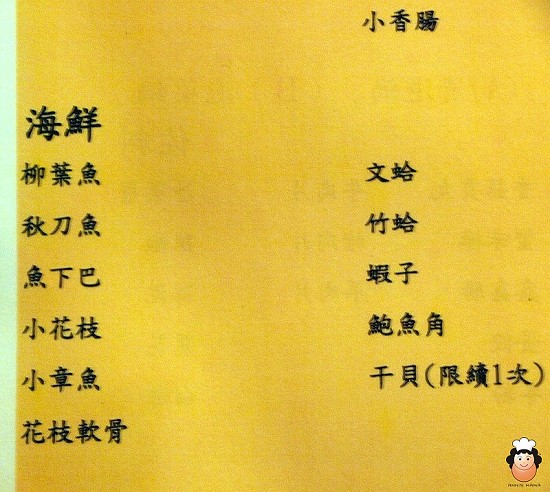 小香腸
海鮮
柳葉魚
秋刀魚
魚下巴
小花枝
小章魚
花枝軟骨
文蛤
竹蛤
蝦子
鮑魚角
干貝(限續1次)